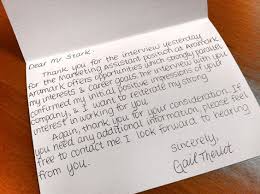 Dear Mr. Stark,
Thank you for the interview yesterday
for the Marketing Assistant position at Aromark.
Aromark offers opportunities which strongly parallel
my interests & career goals. My interview with you
confirmed my initial positive impressions of your
company, & I want to reiterate my strong
interest in working for you.
Again, thank you for your consideration. If
you need any additional information, please feel
free to contact me. I look forward to hearing
from you.
Sincerely,
Gail Theriot